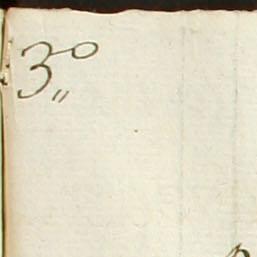 3º„